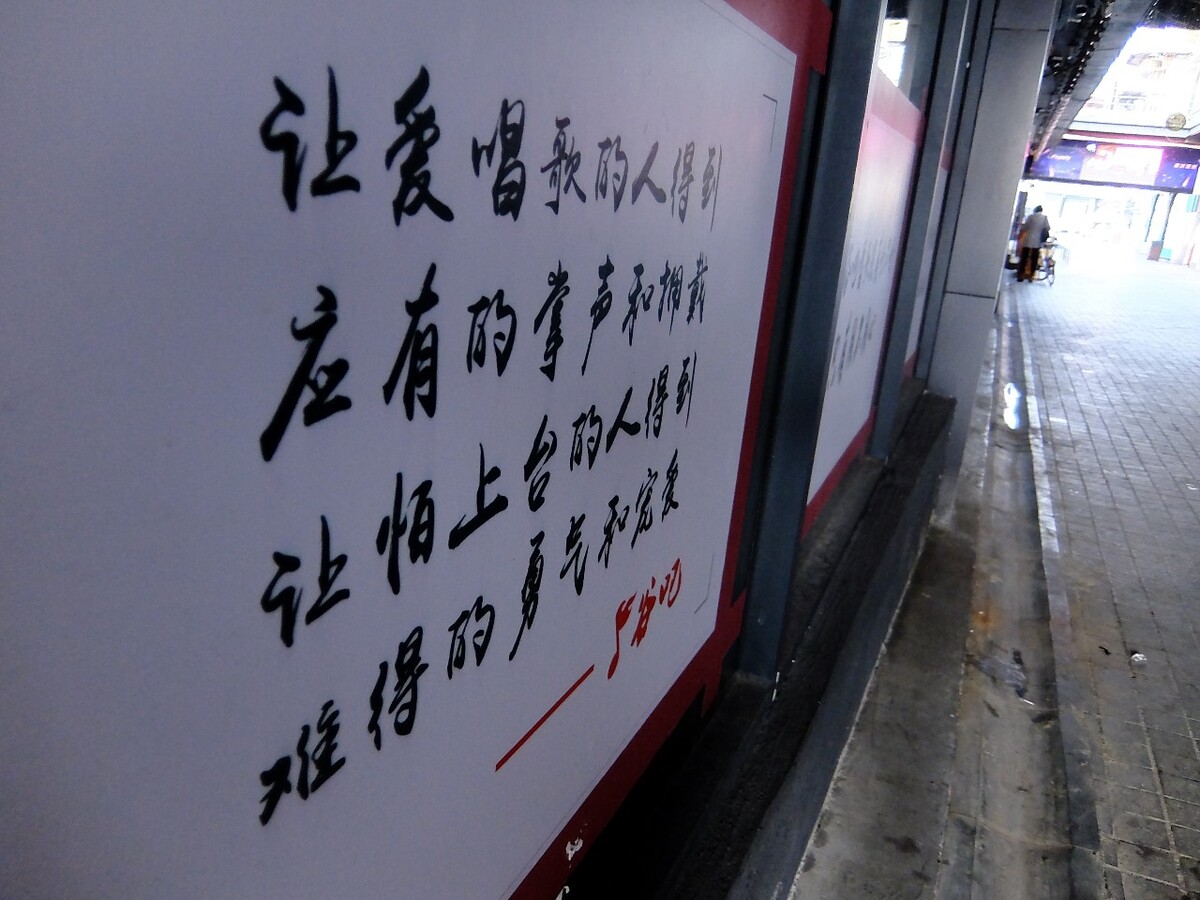 让爱唱歌的人得到
应有的掌声和拥戴
让怕上台的人得到
难得的勇气和宠爱